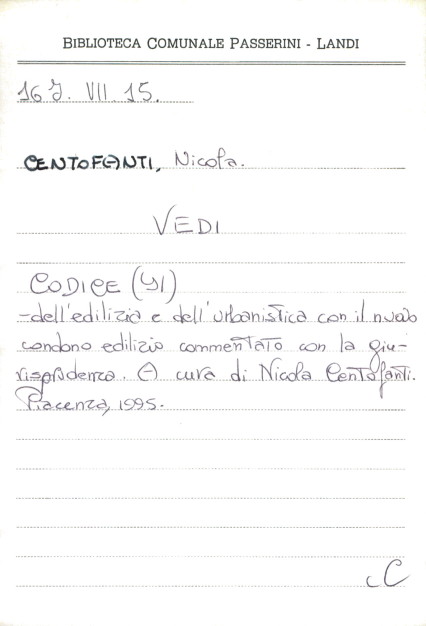 BIBLIOTECA COMUNALE PASSERINI - LANDI
16 J. VII. 15.
CENTOFANTI, Nicola.
VEDI
CODICE (YI)
-dell'edilizia e dell'urbanistica con il nuovo
condono edilizio commentato con la giu-
risprudenza. A cura di Nicola Centofanti.
Piacenza, 1995.
C